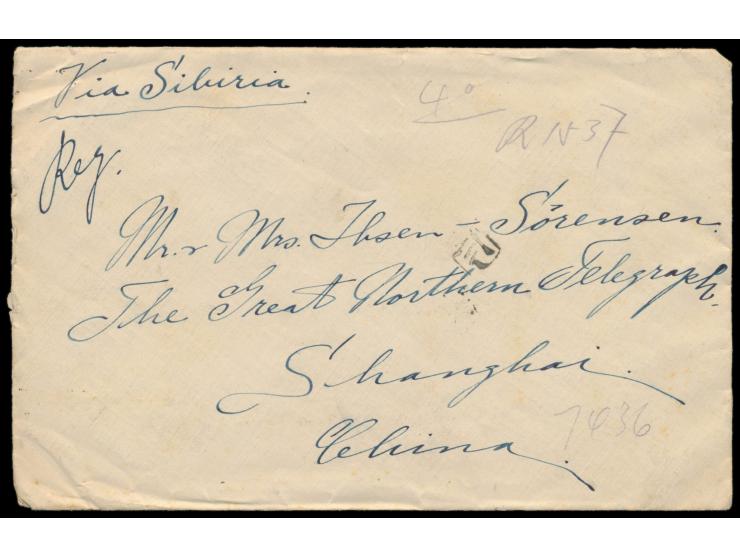 Via Sibiria.
4º
R No 37
Reg.
Mr. & Mrs. Ibsen - Sörensen.
The Great Northern Telegraph.
Shanghai.
China.
1436